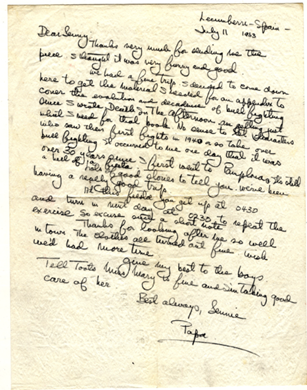 Lecumberri - Spain -
July 11 1953
Dear Senny,
Thanks very much for sending me the
piece. I thought it was very funny and good
We had a fine trip. I decided to come down
here to get the material I needed for an appendix to
cover the evolution and decadence of bull fighting
since I wrote Death in The Afternoon and it is just
what I need for that book.
who saw their first fights in 1948 or so take over
bull fighting it occurred to me one day that it was
over 30 years since I first went to Pamplona. I've still
a hell of lot of good stories to tell you. We've been
having a really good trip
you get up at 0430
and turn in next day at 0230 to repeat the
exercise so excuse such a short note
Thanks for looking after me so well
in town. The clothes all turned out fine. Wish
we'd had more time
Give my best to the boys
Tell Toots Miss Mary is fine and I'm taking good
care of her
Best always,
Papa